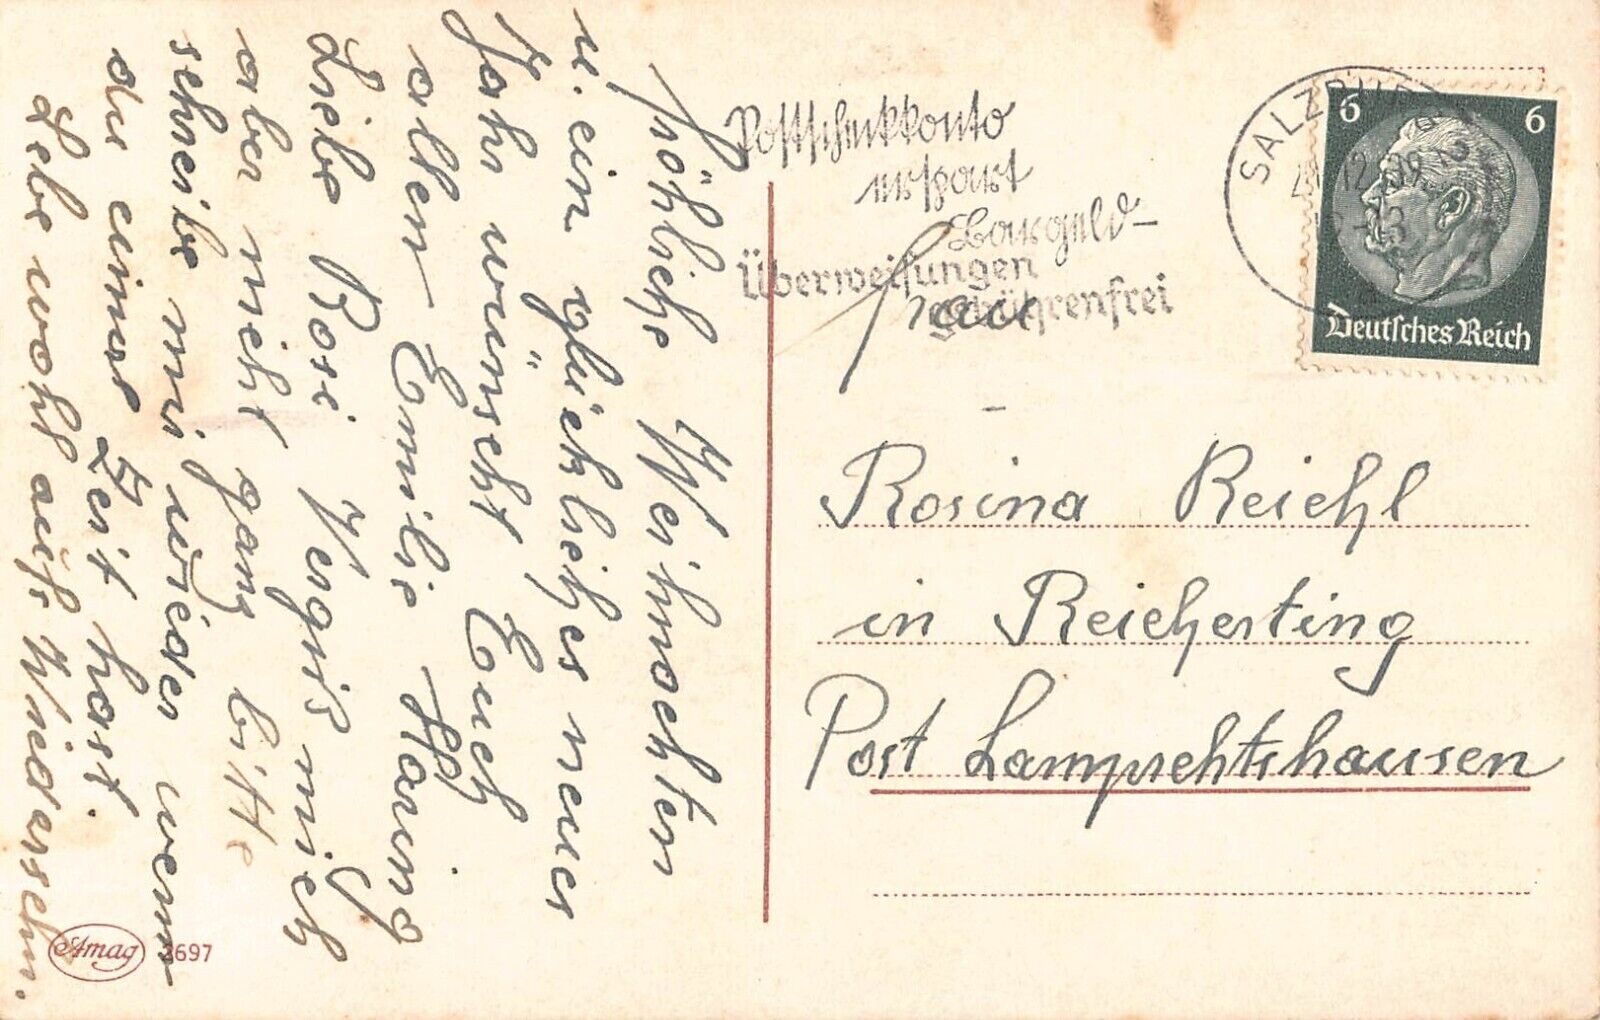 Fröhliche Weihnachten
u. ein glückliches neues
Jahr wünscht Euch
allen Emilie Haring
Liebe Rosi Vergiß mich
aber nicht ganz bitte
schreibe mir wieder wenn
du einmal Zeit hast.
Lebe wohl aufs Wiedersehn.
Amag 2697
Postscheckkonto
erspart
Bargeld-
Überweisungen
gebührenfrei
SALZBURG
12.39
6 6
Deutsches Reich
Frau
Rosina Reichl
in Reicherting
Post Lamprechtshausen